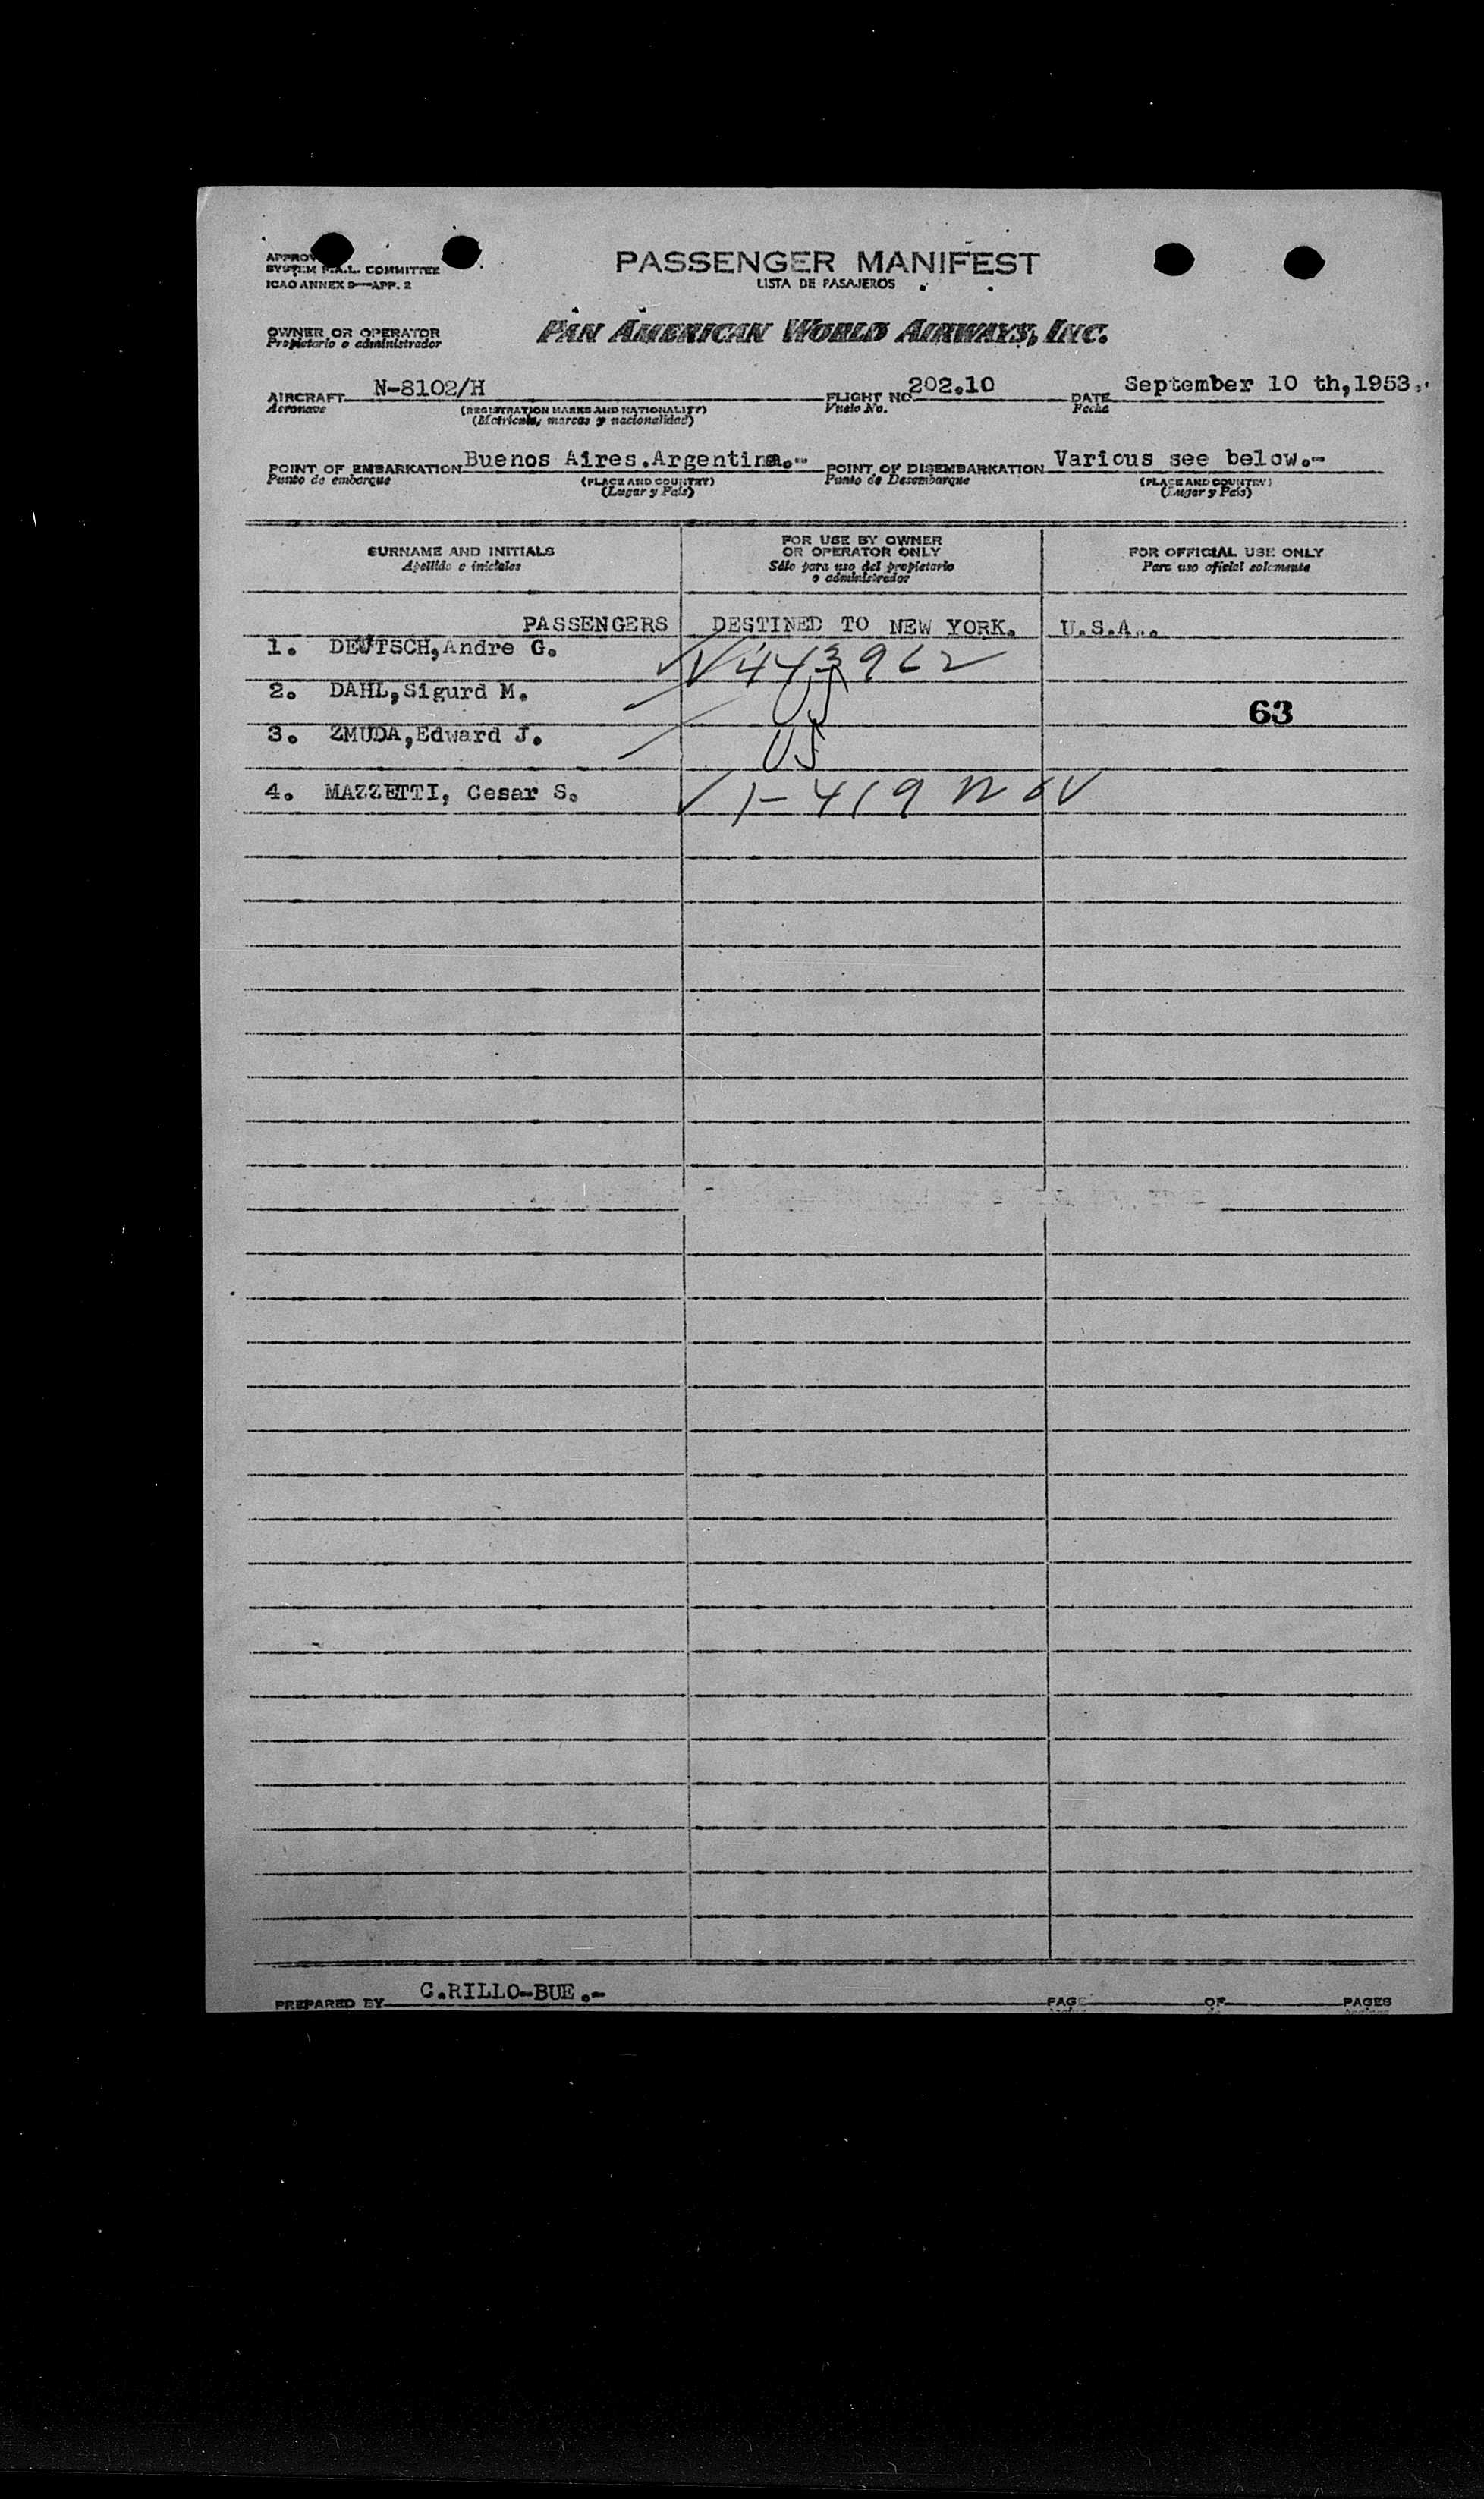 PASSENGER MANIFEST
LISTA DE PASAJEROS
SYSTEM F.A.L. COMMITTEE
ICAO ANNEX 9—APP. 2
OWNER OR OPERATOR
Propietario o administrador
PAN AMERICAN WORLD AIRWAYS, INC.
AIRCRAFT N-8102/H FLIGHT NO. 202.10 DATE September 10 th,1953.
Aeronave (REGISTRATION MARKS AND NATIONALITY) Vuelo No. Fecha
(Matrícula, marcas y nacionalidad)
POINT OF EMBARKATION Buenos Aires.Argentina.- POINT OF DISEMBARKATION Various see below.-
Punto de embarque (PLACE AND COUNTRY) Punto de Desembarque (PLACE AND COUNTRY)
(Lugar y País) (Lugar y País)
SURNAME AND INITIALS
Apellido e iniciales
FOR USE BY OWNER
OR OPERATOR ONLY
Sólo para uso del propietario
o administrador
FOR OFFICIAL USE ONLY
Para uso oficial solamente
PASSENGERS DESTINED TO NEW YORK. U.S.A..
1. DEUTSCH,Andre G. V443962
2. DAHL,Sigurd M. US
63
3. ZMUDA,Edward J. US
4. MAZZETTI, Cesar S. 1-419
C.RILLO-BUE.-
PREPARED BY PAGE OF PAGES